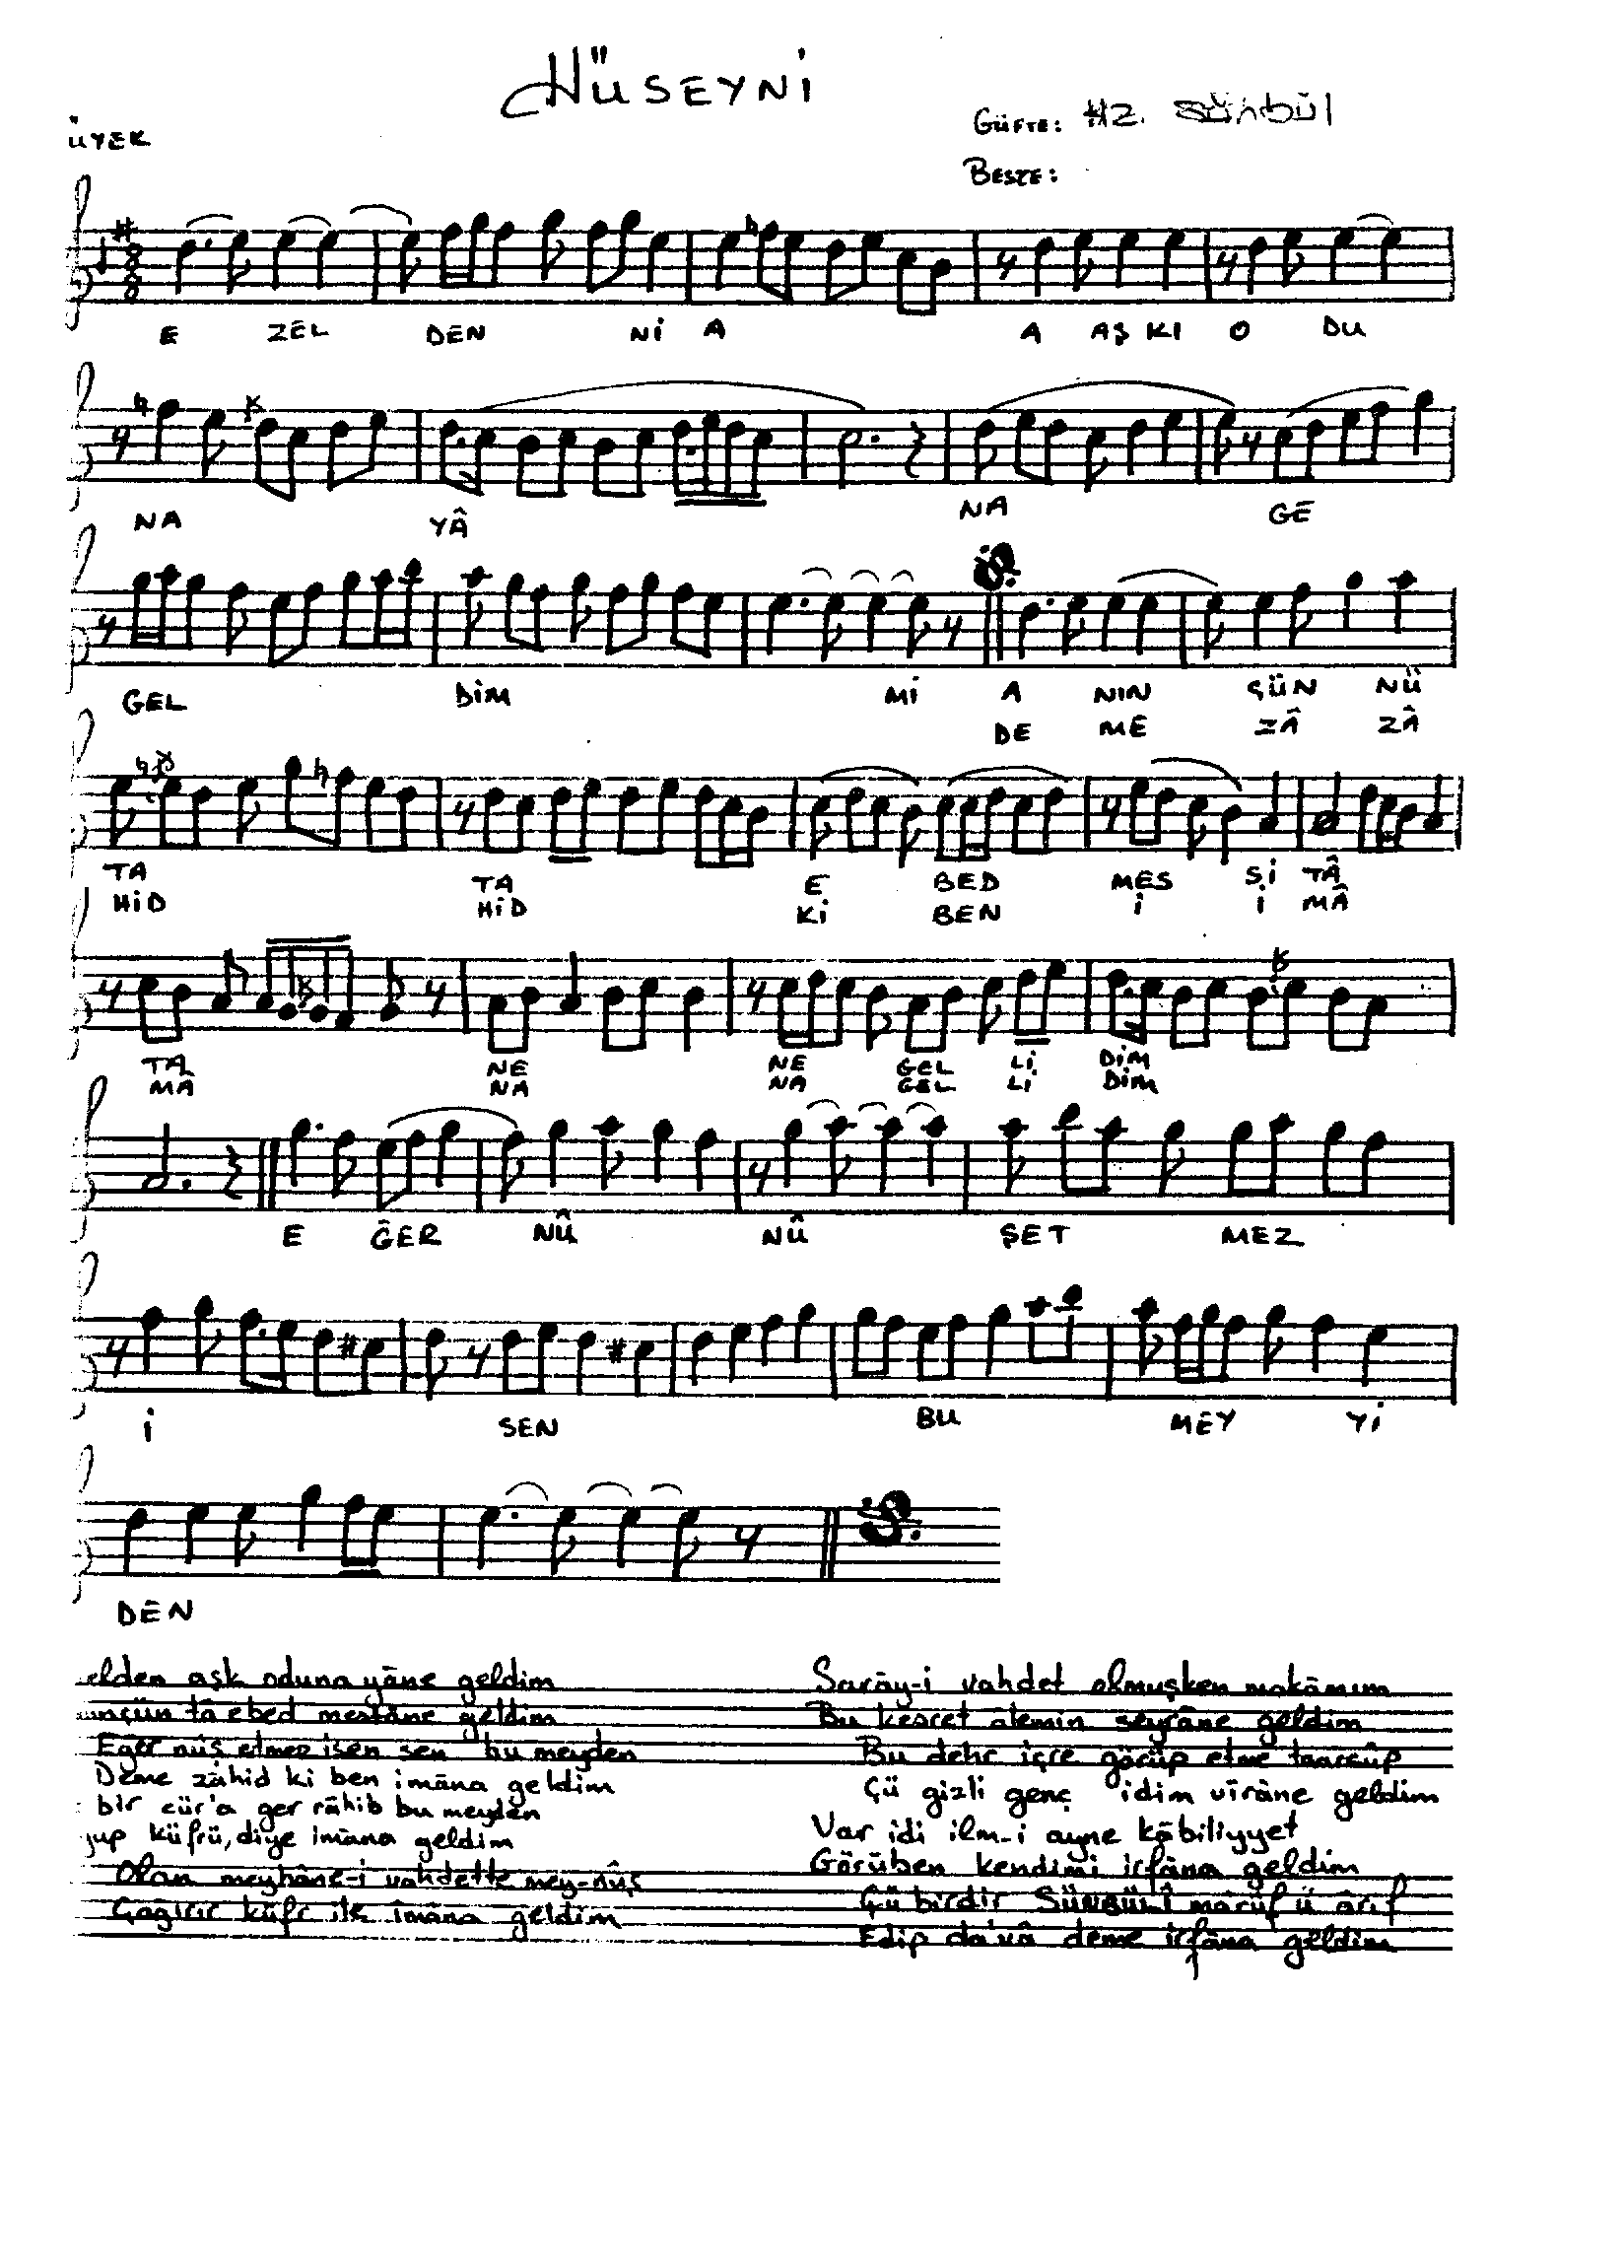 HÜSEYNİ
ÜYEK
GÜFTE: HZ. SÜNBÜL
BESTE:
8
8
E ZEL DEN Nİ A A AŞ KI O DU
NA YÂ NA GE
GEL DİM Mİ A NIN ÇÜN NÜ
DE ME ZÂ ZÂ
TA TA E BED MES Sİ TÂ
HİD HİD Kİ BEN İ İ MÂ
TA NE NE GEL Lİ DİM
MA NA NA GEL Lİ DİM
E ĞER NÛ NÛ ŞET MEZ
İ SEN BU MEY Yİ
DEN
elden aşk oduna yâne geldim
unçün tâ ebed mestâne geldim
Eğer nûş etmez isen sen bu meyden
Deme zâhid ki ben imâna geldim
bir cür'a ger râhib bu meyden
yup küfrü, diye imâna geldim
Olan meyhâne-i vahdette mey-nûş
Çağırır küfr ile îmâna geldim
Sarây-i vahdet olmuşken makâmım
Bu kesret âlemin seyrâne geldim
Bu dehr içre görüp etme taaccüp
Çü gizli genç idim vîrâne geldim
Var idi ilm-i ayne kâbiliyyet
Görüben kendimi irfâna geldim
Çü birdir SÜNBÜLÎ mârûf ü ârif
Edip da'vâ deme irfâna geldim